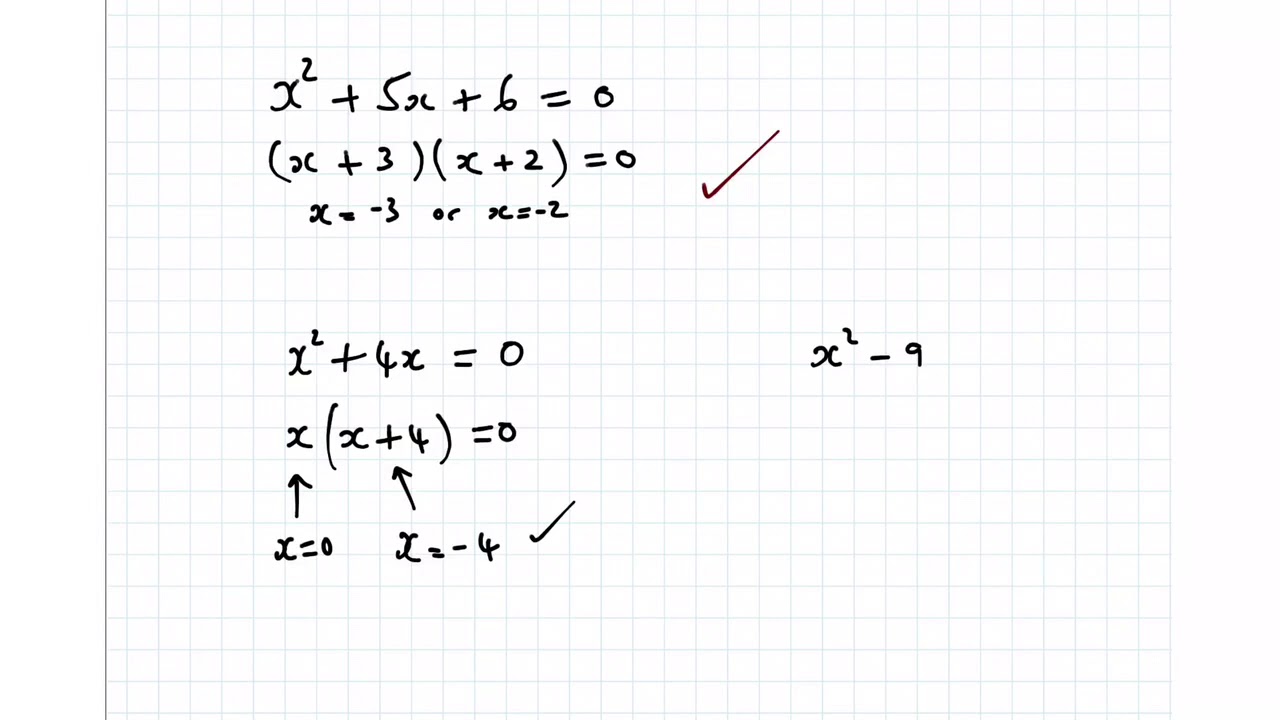 x² + 5x + 6 = 0
(x + 3)(x + 2) = 0
x = -3 or x = -2
x² + 4x = 0
x(x + 4) = 0
x = 0 x = -4
x² - 9